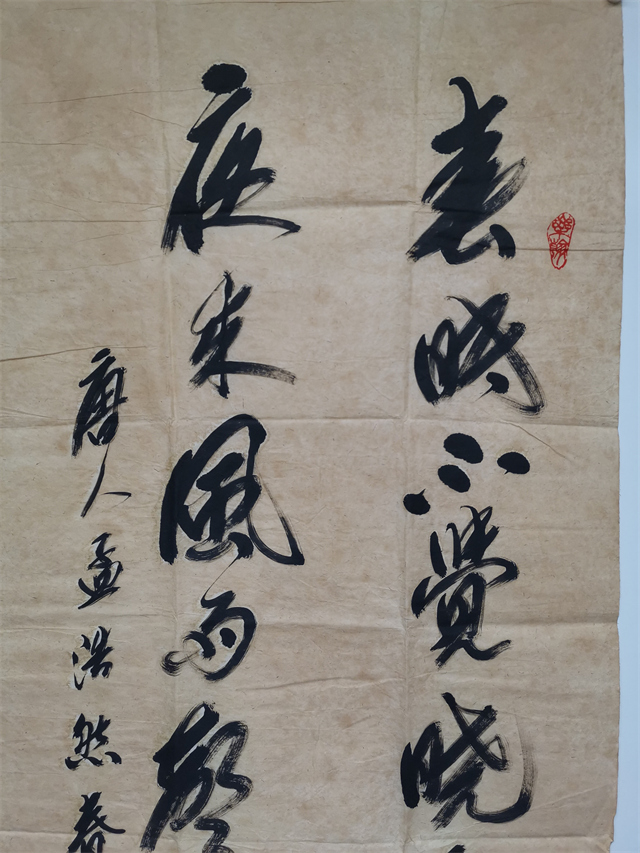 春眠不覺晓
夜来風雨聲
唐人孟浩然春